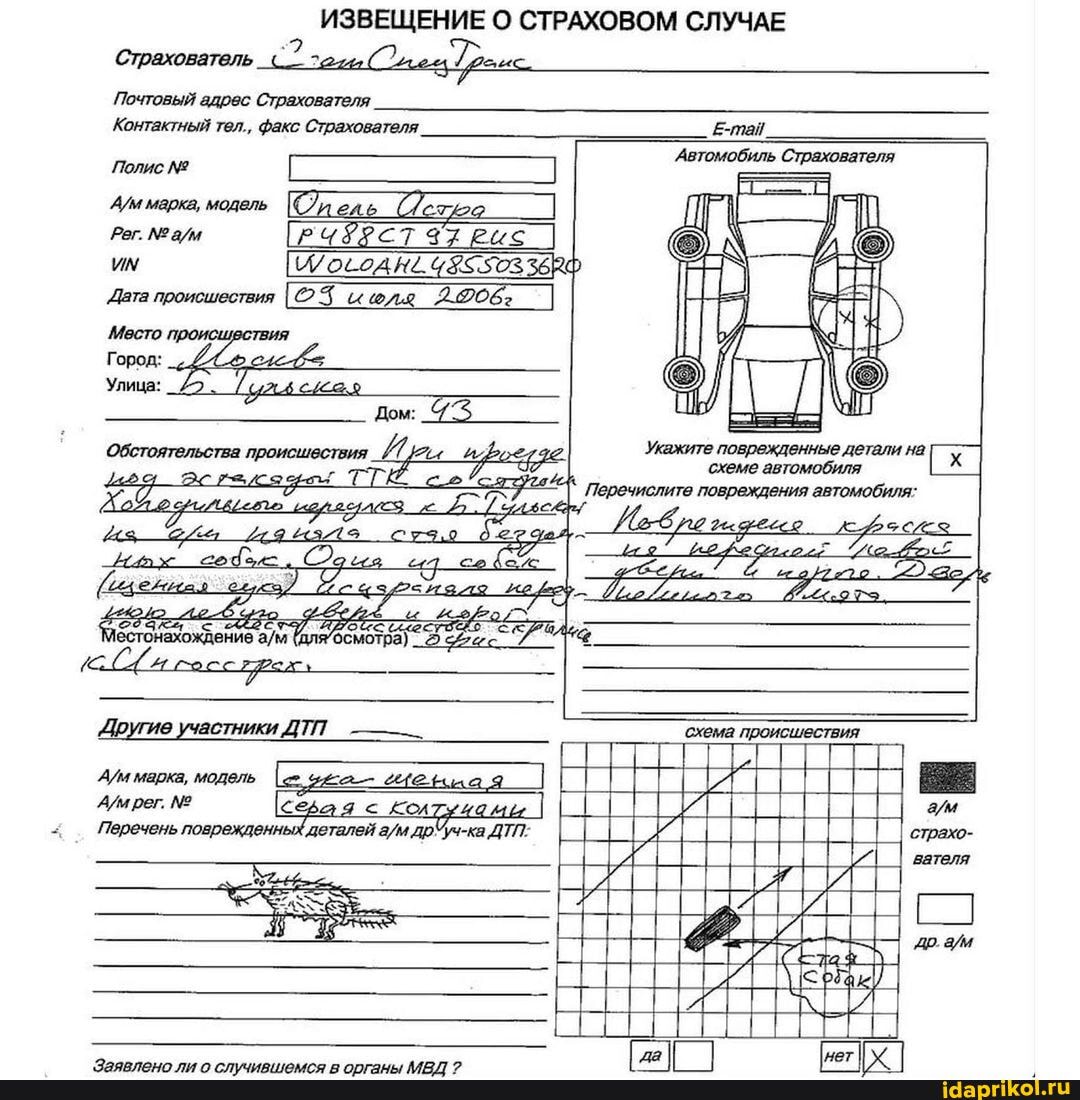 ИЗВЕЩЕНИЕ О СТРАХОВОМ СЛУЧАЕ
Страхователь СпецТранс
Почтовый адрес Страхователя
Контактный тел., факс Страхователя E-mail
Полис №
А/м марка, модель Опель Астра
Рег. № а/м Р488СТ 97 RUS
VIN W0L0AHL4855033620
Дата происшествия 09 июля 2006г
Место происшествия
Город: Москва
Улица: Б. Тульская
Дом: 43
Обстоятельства происшествия При проезде
под эстакадой ТТК со стороны
Холодильного переулка к Б. Тульской
на а/м напала стая бездом-
ных собак. Одна из собак
(щенная сука) исцарапала перед-
нюю левую дверь и порог.
Собаки с места происшествия скрылись
Местонахождение а/м (для осмотра) офис
к. Ингосстрах.
Автомобиль Страхователя
х х
Укажите поврежденные детали на
схеме автомобиля X
Перечислите повреждения автомобиля:
Повреждена краска
на передней левой
двери и пороге. Дверь
немного вмята.
Другие участники ДТП
А/м марка, модель сука щенная
А/м рег. № серая с колтунами
Перечень поврежденных деталей а/м др. уч-ка ДТП:
схема происшествия
стая
собак
а/м
страхо-
вателя
др. а/м
Заявлено ли о случившемся в органы МВД ? да нет X
idaprikol.ru